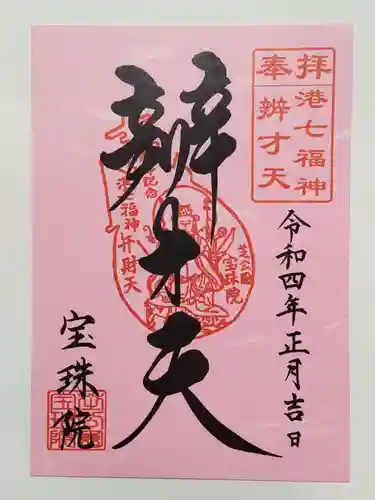 奉拝
港七福神
辨才天
令和四年正月吉日
辨才天
宝珠院
港七福神弁財天
芝公園
宝珠院